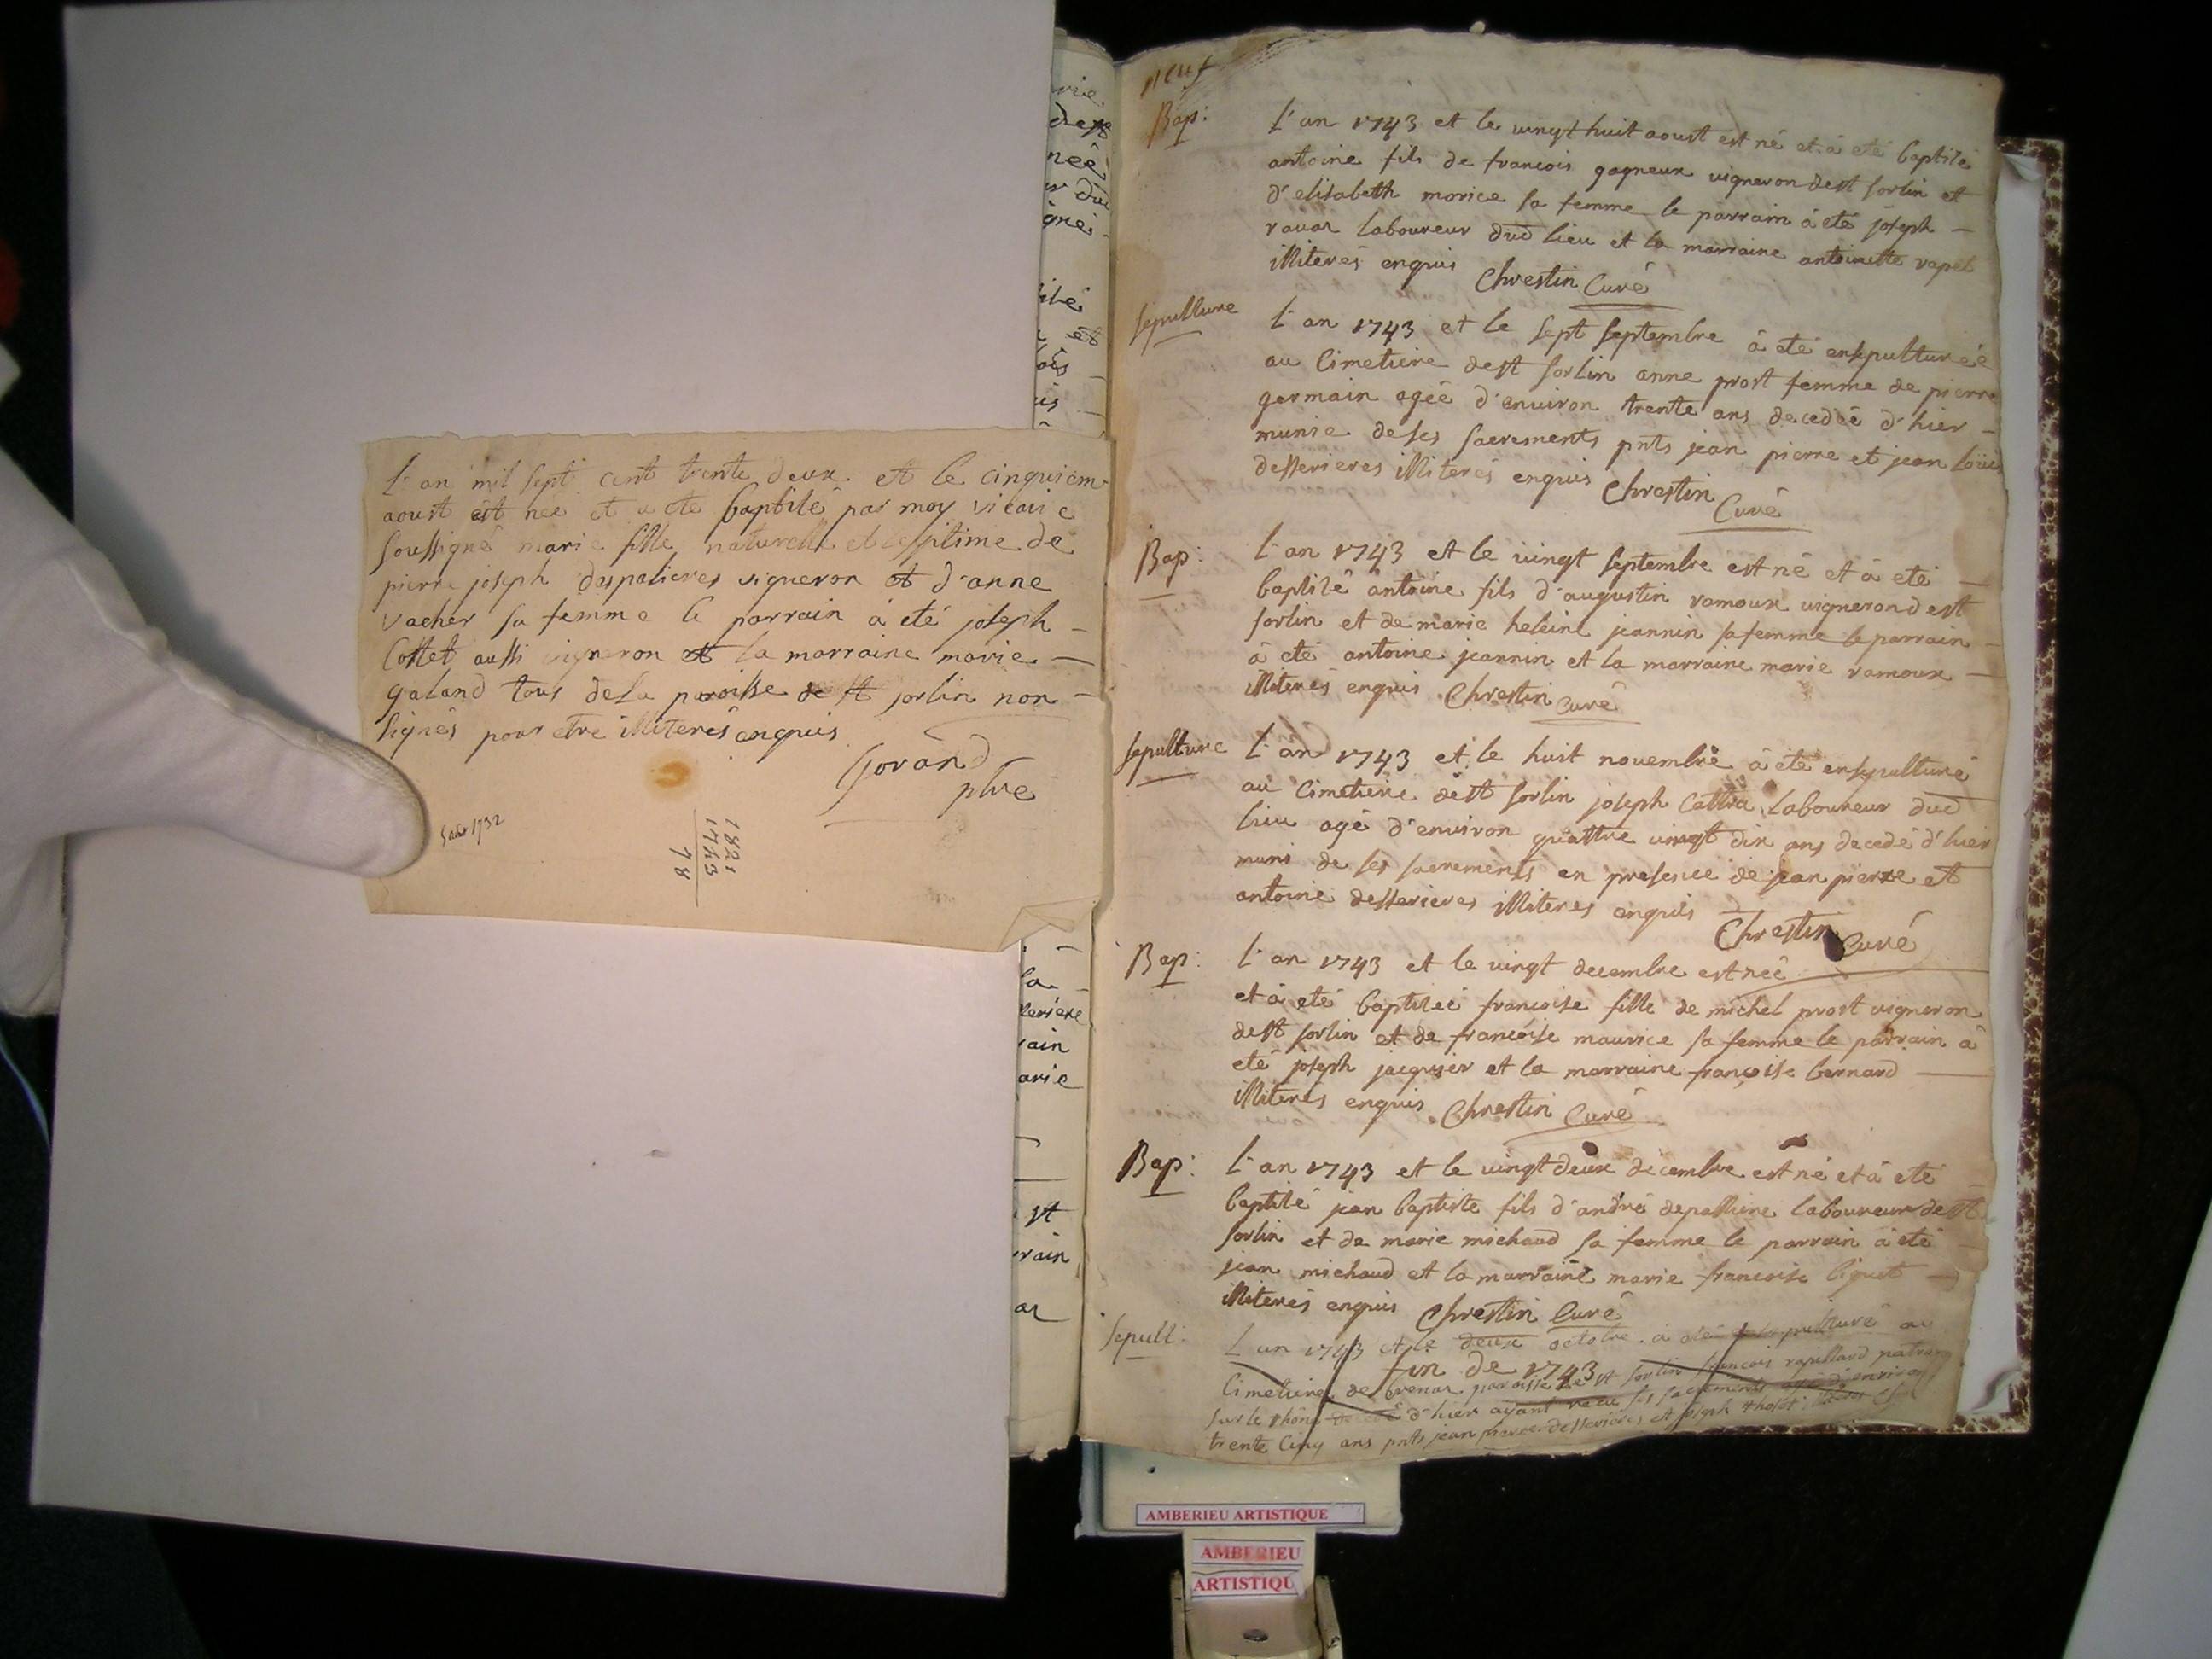 L'an mil sept cent trente deux et le cinquiem
aoust est neé et a eté baptisé par moy vicaire
soussigné marie fille naturelle et legitime de
pierre joseph despalieres vigneron et d'anne
vacher sa femme le parrain à eté joseph
Cottet aussi vigneron et la marraine marie
galand tous de la paroisse de st sorlin non
signés pour etre illiterés enquis
Gorand
ptre
5 août 1732
1821
1743
78
neuf
Bap:
L'an 1743 et le vingt huit aoust est né et à eté baptisé
antoine fils de francois gagneux vigneron de st sorlin et
d'elisabeth morice sa femme le parrain à eté joseph
ravat laboureur dud lieu et la marraine antoinette rapet
illiterés enquis Chrestin Curé
sepulture
L'an 1743 et le sept septembre à eté ensepulturée
au Cimetiere de st sorlin anne prost femme de pierre
germain ageé d'environ trente ans decedeé d'hier
munie de ses sacrements pnts jean pierre et jean Loüis
desserieres illiterés enquis Chrestin
Curé
Bap:
L'an 1743 et le vingt septembre est né et à eté
baptisé antoine fils d'augustin ramoux vigneron de st
sorlin et de marie heleine jeannin sa femme le parrain
à eté antoine jeannin et la marraine marie ramoux
illiterés enquis Chrestin Curé
sepulture
L'an 1743 et le huit novembre à eté ensepulturé
au Cimetiere de st sorlin joseph Laboureur dud
lieu agé d'environ quattre vingt dix ans decedé d'hier
muni de ses sacrements en presence de jean pierre et
antoine desserieres illiteres enquis
Chrestin Curé
Bap:
L'an 1743 et le vingt decembre est neé
et à eté baptiseé francoise fille de michel prost vigneron
de st sorlin et de francoise maurice sa femme le parrain à
eté joseph jacquier et la marraine françoise bernard
illiterés enquis Chrestin Curé
Bap:
L'an 1743 et le vingt deux décembre est né et à eté
baptisé jean baptiste fils d'andré depalliere laboureur de st
sorlin et de marie michaud sa femme le parrain à eté
jean michaud et la marraine marie francoise
illiterés enquis Chrestin Curé
sepult:
L'an 1743 et le deux octobre à eté au
fin de 1743
Cimetiere de paroisse de st sorlin francois rapillard patron
sur le rhône decedé d'hier ayant recu ses sacrements agé d'environ
trente Cinq ans pnts jean pierre desserieres et joseph
AMBERIEU ARTISTIQUE
AMBERIEU
ARTISTIQU